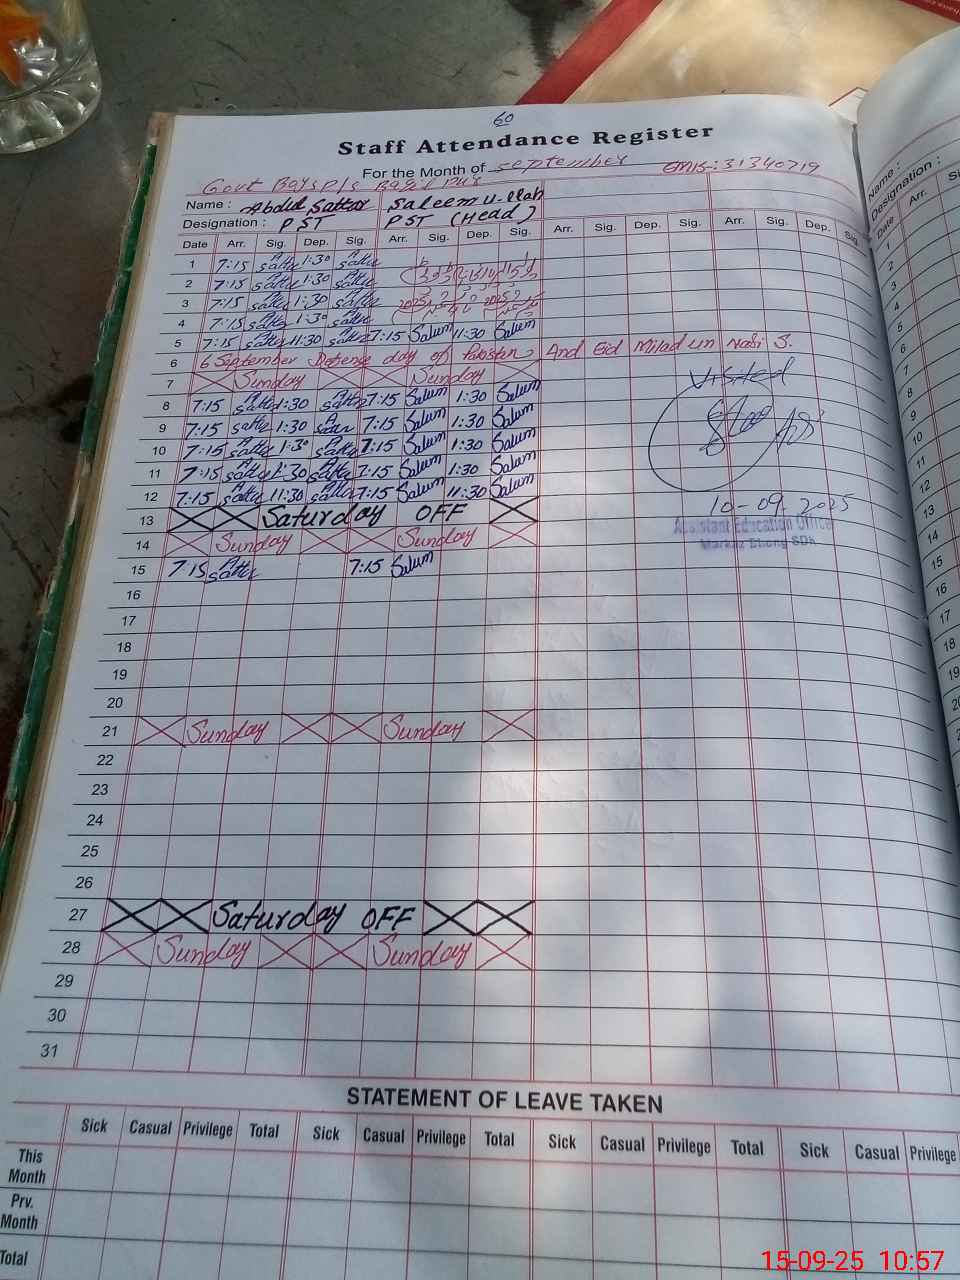 60
Staff Attendance Register
For the Month of september EMIS-: 31340719
Govt Boys P/s
Name : Abdul Sattar Saleem u-llah
Designation : PST PST (Head)
Date Arr. Sig. Dep. Sig. Arr. Sig. Dep. Sig. Arr. Sig. Dep. Sig. Arr. Sig. Dep. Sig.
1 7:15 A Sattar 1:30 A Sattar
2 7:15 A Sattar 1:30 A Sattar
3 7:15 A Sattar 1:30 A Sattar
4 7:15 A Sattar 1:30 A Sattar
5 7:15 A Sattar 11:30 A Sattar 7:15 Salum 11:30 Salum
6 6 September Defense day of Pakistan, And Eid Milad un Nabi S.
7 Sunday Sunday
Visited
8 7:15 A Sattar 1:30 A Sattar 7:15 Salum 1:30 Salum
9 7:15 A Sattar 1:30 A Sattar 7:15 Salum 1:30 Salum
10 7:15 A Sattar 1:30 A Sattar 7:15 Salum 1:30 Salum
11 7:15 A Sattar 1:30 A Sattar 7:15 Salum 1:30 Salum
12 7:15 A Sattar 11:30 A Sattar 7:15 Salum 11:30 Salum
10-09-2025
13 Saturday OFF
Assistant Education Officer
Markaz Bhong SDK
14 Sunday Sunday
15 7:15 A Sattar 7:15 Salum
16
17
18
19
20
21 Sunday Sunday
22
23
24
25
26
27 Saturday OFF
28 Sunday Sunday
29
30
31
STATEMENT OF LEAVE TAKEN
Sick Casual Privilege Total Sick Casual Privilege Total Sick Casual Privilege Total Sick Casual Privilege
This Month
Prv. Month
Total
Name :
Designation :
Date Arr. Si
1
2
3
4
5
6
7
8
9
10
11
12
13
14
15
16
17
18
19
15-09-25 10:57